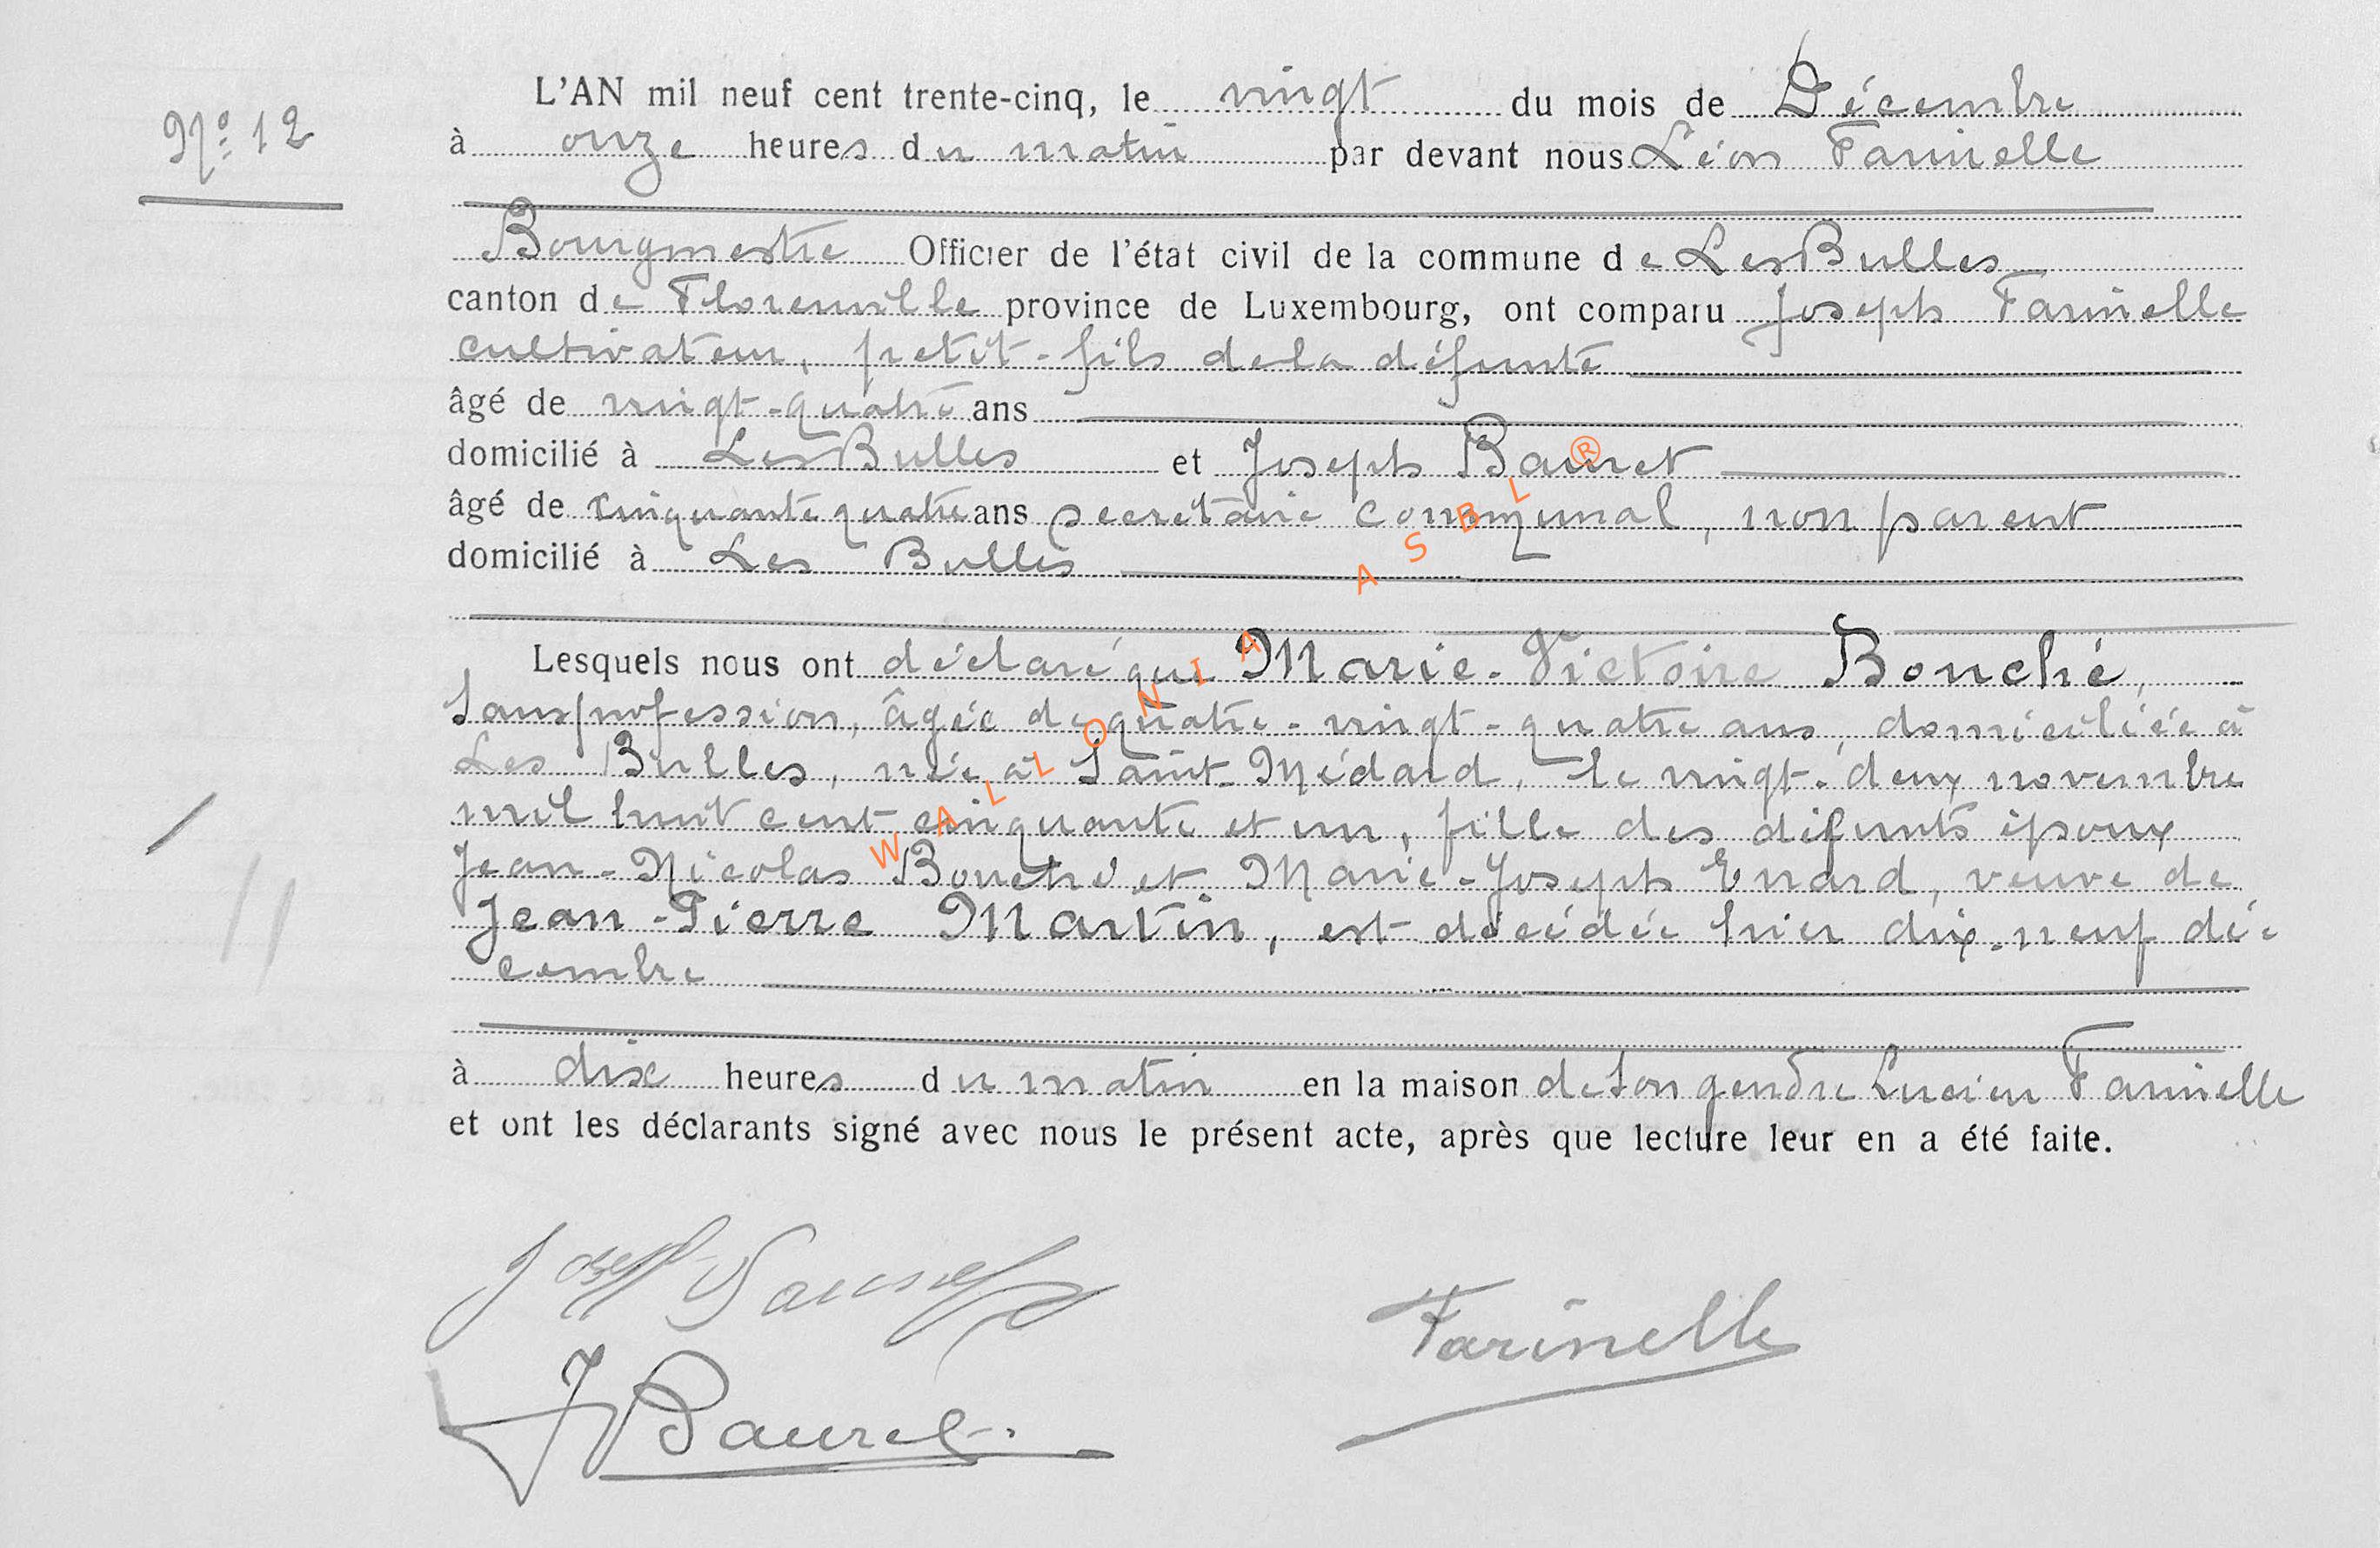 N° 12
L'AN mil neuf cent trente-cinq, le vingt du mois de Décembre
à onze heures du matin par devant nous Léon Farinelle
Bourgmestre Officier de l'état civil de la commune de Les Bulles
canton de Florenville province de Luxembourg, ont comparu Joseph Farinelle
cultivateur, petit-fils de la défunte
âgé de vingt-quatre ans
domicilié à Les Bulles et Joseph Bauret
âgé de cinquante quatre ans secrétaire communal, non parent
domicilié à Les Bulles
Lesquels nous ont déclaré que Marie-Victoire Bouché,
Sans profession, âgée de quatre-vingt-quatre ans, domiciliée à
Les Bulles, née à Saint-Médard, le vingt-deux novembre
mil huit cent cinquante et un, fille des défunts époux
Jean-Nicolas Bouché et Marie-Joseph Enard, veuve de
Jean-Pierre Martin, est décédée hier dix-neuf dé-
cembre
à dix heures du matin en la maison de son gendre Lucien Farinelle
et ont les déclarants signé avec nous le présent acte, après que lecture leur en a été faite.
Joseph
Farinelle
J Bauret.
WALLONIA ASBL ®